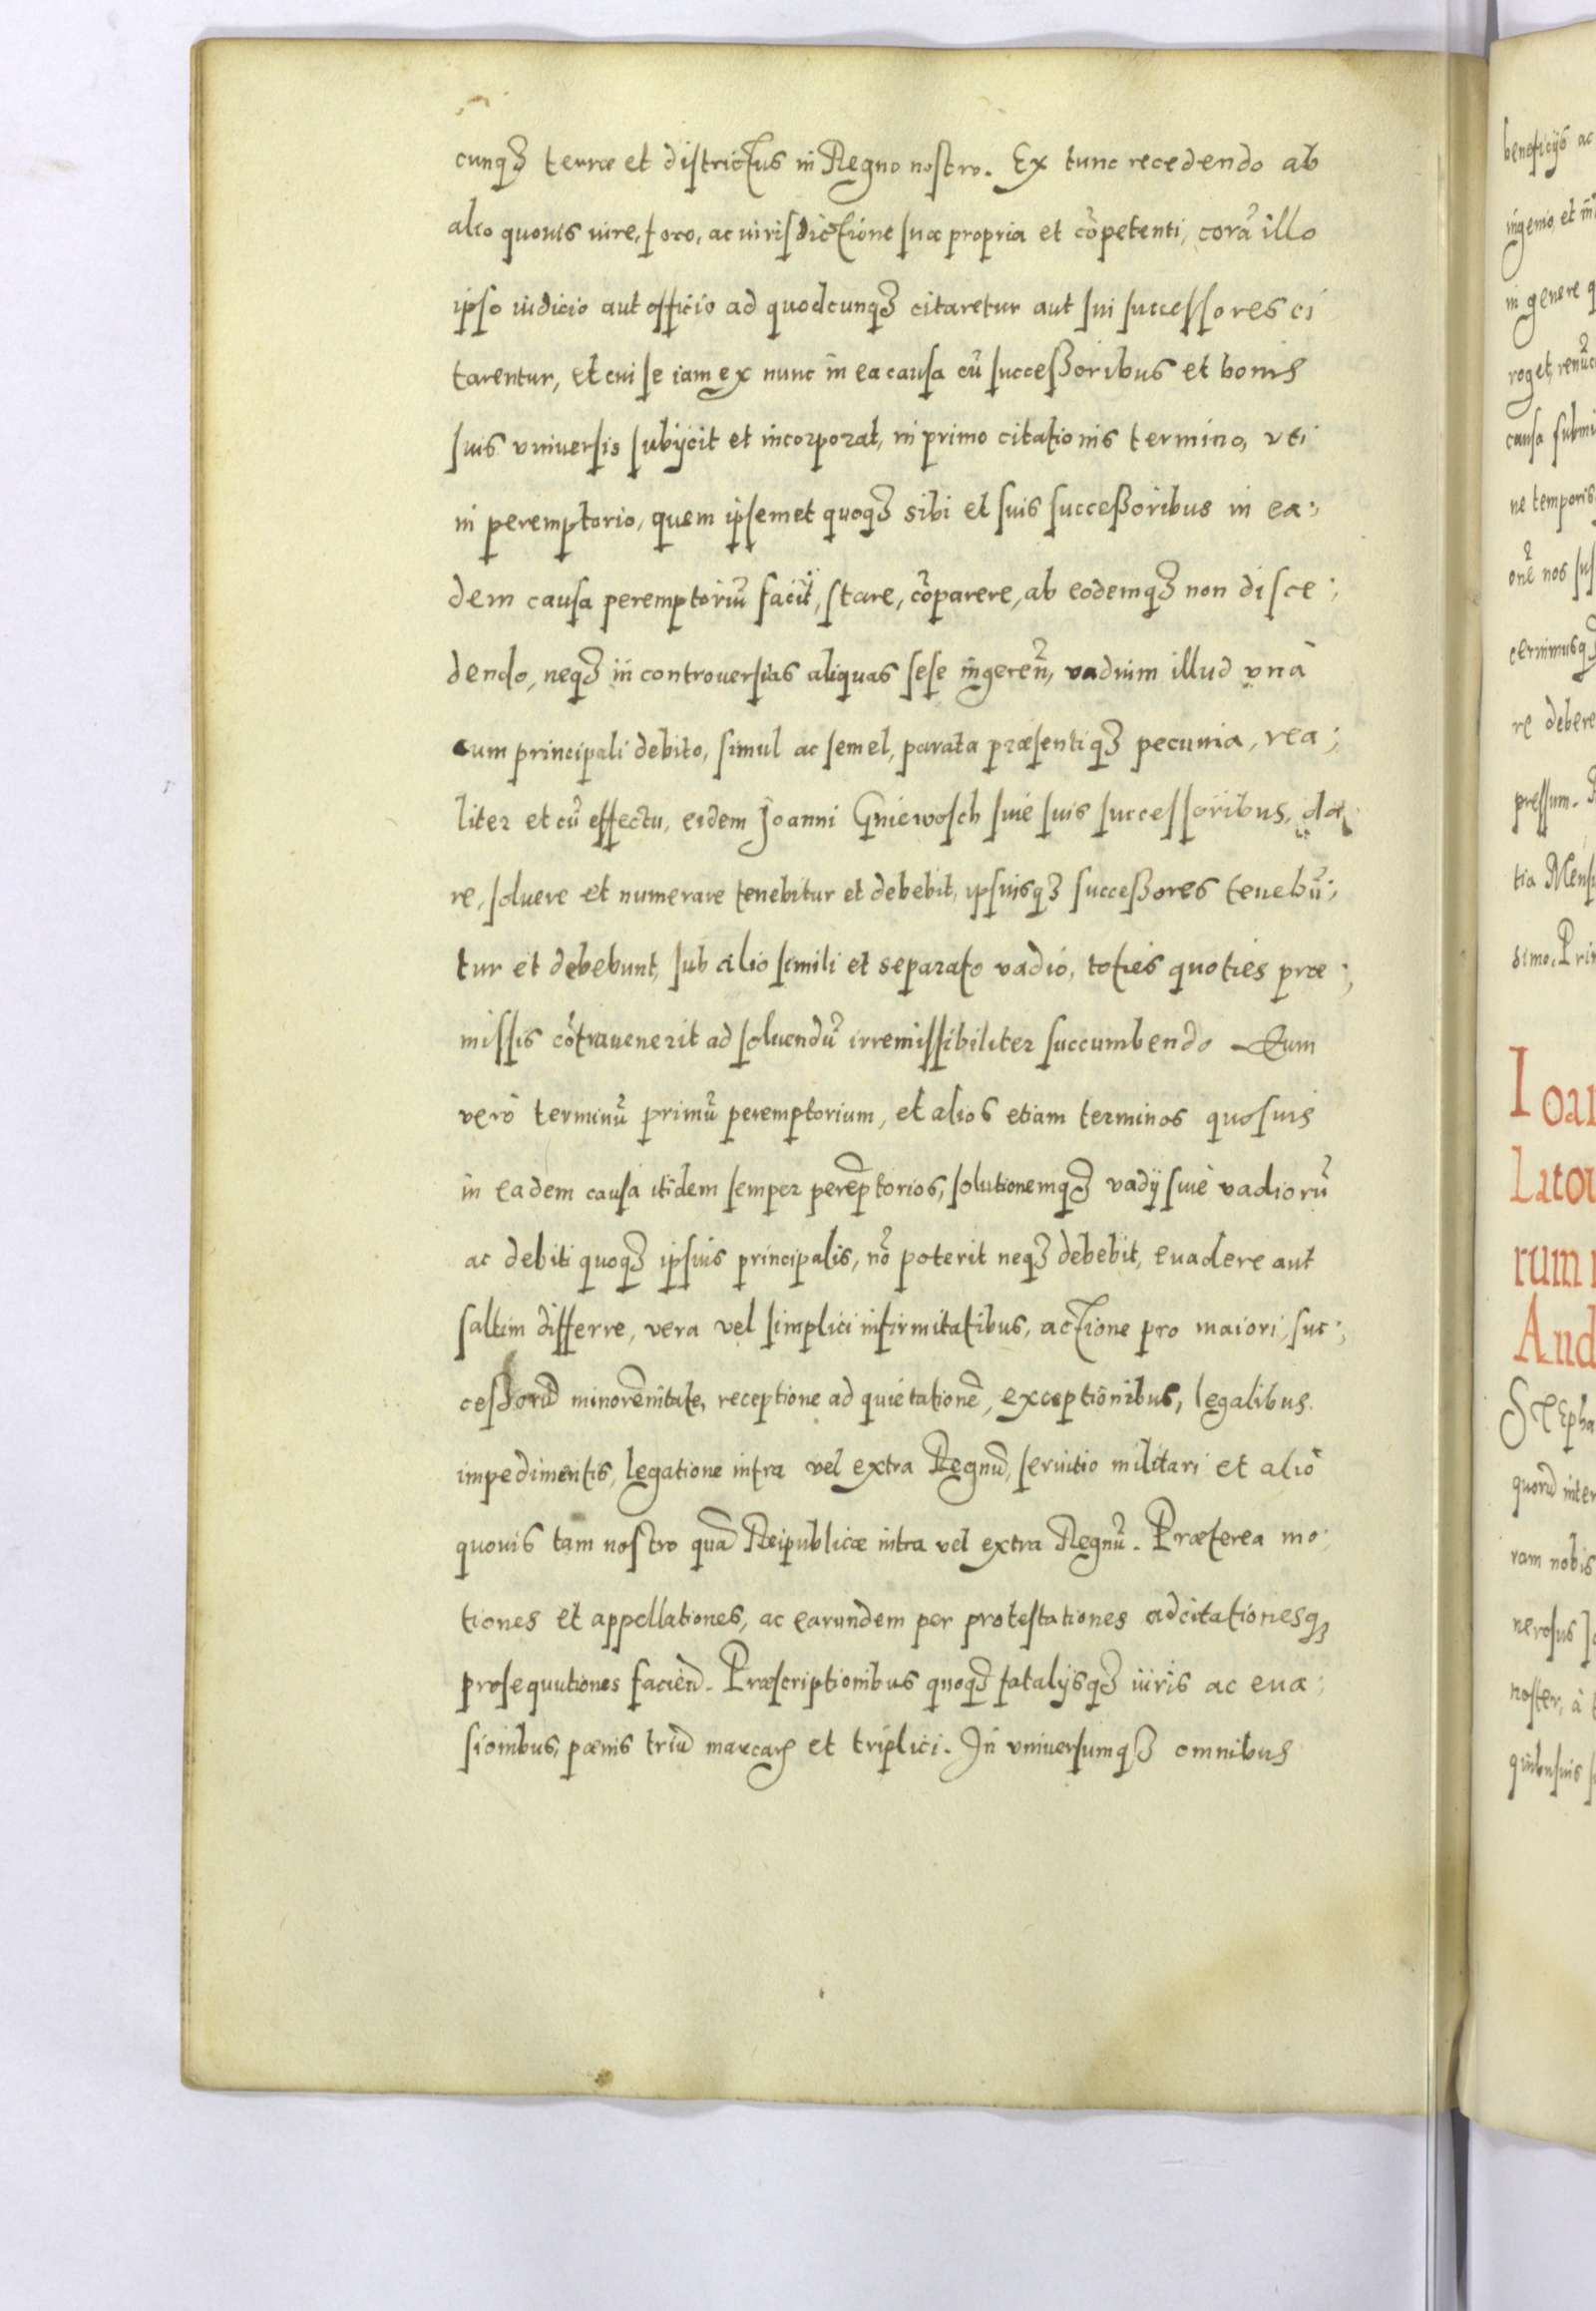 cunqꝫ terræ et districtus in Regno nostro. Ex tunc recedendo ab
alio quouis iure, foro, ac iurisdictione sua propria et cõpetenti, corã illo
ipso iudicio aut officio ad quodcunqꝫ citaretur aut sui successores ci
tarentur, et cui se iam ex nunc in ea causa cũ successoribus et bonis
suis vniuersis subijcit et incorporat, in primo citationis termino, vti
in peremptorio, quem ipsemet quoqꝫ sibi et suis successoribus in ea;
dem causa peremptoriũ facit, stare, cõparere, ab eodemqꝫ non disce;
dendo, neqꝫ in controuersias aliquas sese ingereñ, vadium illud vnà
cum principali debito, simul ac semel, parata præsentiqꝫ pecunia, rea;
liter et cũ effectu, eidem Joanni Gniewosch siue suis successoribus, da
re, soluere et numerare tenebitur et debebit, ipsiusqꝫ successores tenebũ;
tur et debebunt, sub alio simili et separato vadio, toties quoties præ;
missis cõtrauenerit ad soluendũ irremissibiliter succumbendo Eum
verò terminũ primũ peremptorium, et alios etiam terminos quosuis
in eadem causa itidem semper perẽptorios, solutionemqꝫ vadij siue vadiorũ
ac debiti quoqꝫ ipsius principalis, nõ poterit neqꝫ debebit, euadere aut
saltim differre, vera vel simplici infirmitatibus, actione pro maiori, suc;
cessorũ minorẽnitate, receptione ad quietationẽ, exceptionibus, legalibus
impedimentis, legatione intra vel extra Regnũ, seruitio militari et alio
quouis tam nostro quã Reipublicæ intra vel extra Regnũ. Præterea mo
tiones et appellationes, ac earundem per protestationes adcitationesqꝫ
prosequutiones facieñd. Præscriptionibus quoqꝫ fatalijsqꝫ iuris ac eua;
sionibus, pœnis triũ marcarꝝ et triplici. In vniuersumqꝫ omnibus
beneficijs ac
ingenio, et
in genere
roget,
causa
ne temporis
nos
cernimusqꝫ
re debere
pressum.
tia
simo.
Ioa
Lato
rum
And
Stepha
quorũ inter
ram nobis
nerosus
noster, à
quibusuis